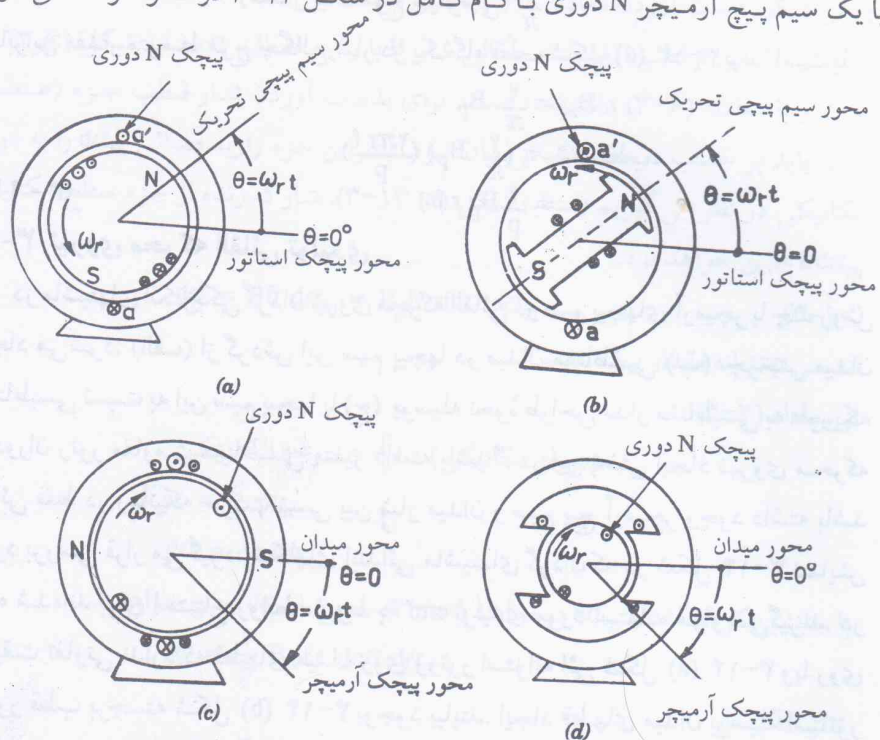 با یک سیم پیچ آرمیچر N دوری با گام کامل
پیچک N دوری
محور سیم پیچی تحریک
a'
N
θ=ωrt
θ=0°
ωr
S
محور پیچک استاتور
a
(a)
پیچک N دوری
محور سیم پیچی تحریک
a'
ωr
N
θ=ωrt
θ=0
S
محور پیچک استاتور
a
(b)
پیچک N دوری
ωr
N
S
محور میدان
θ=0
θ=ωrt
محور پیچک آرمیچر
(c)
پیچک N دوری
ωr
محور میدان
θ=0°
θ=ωrt
محور پیچک آرمیچر
(d)